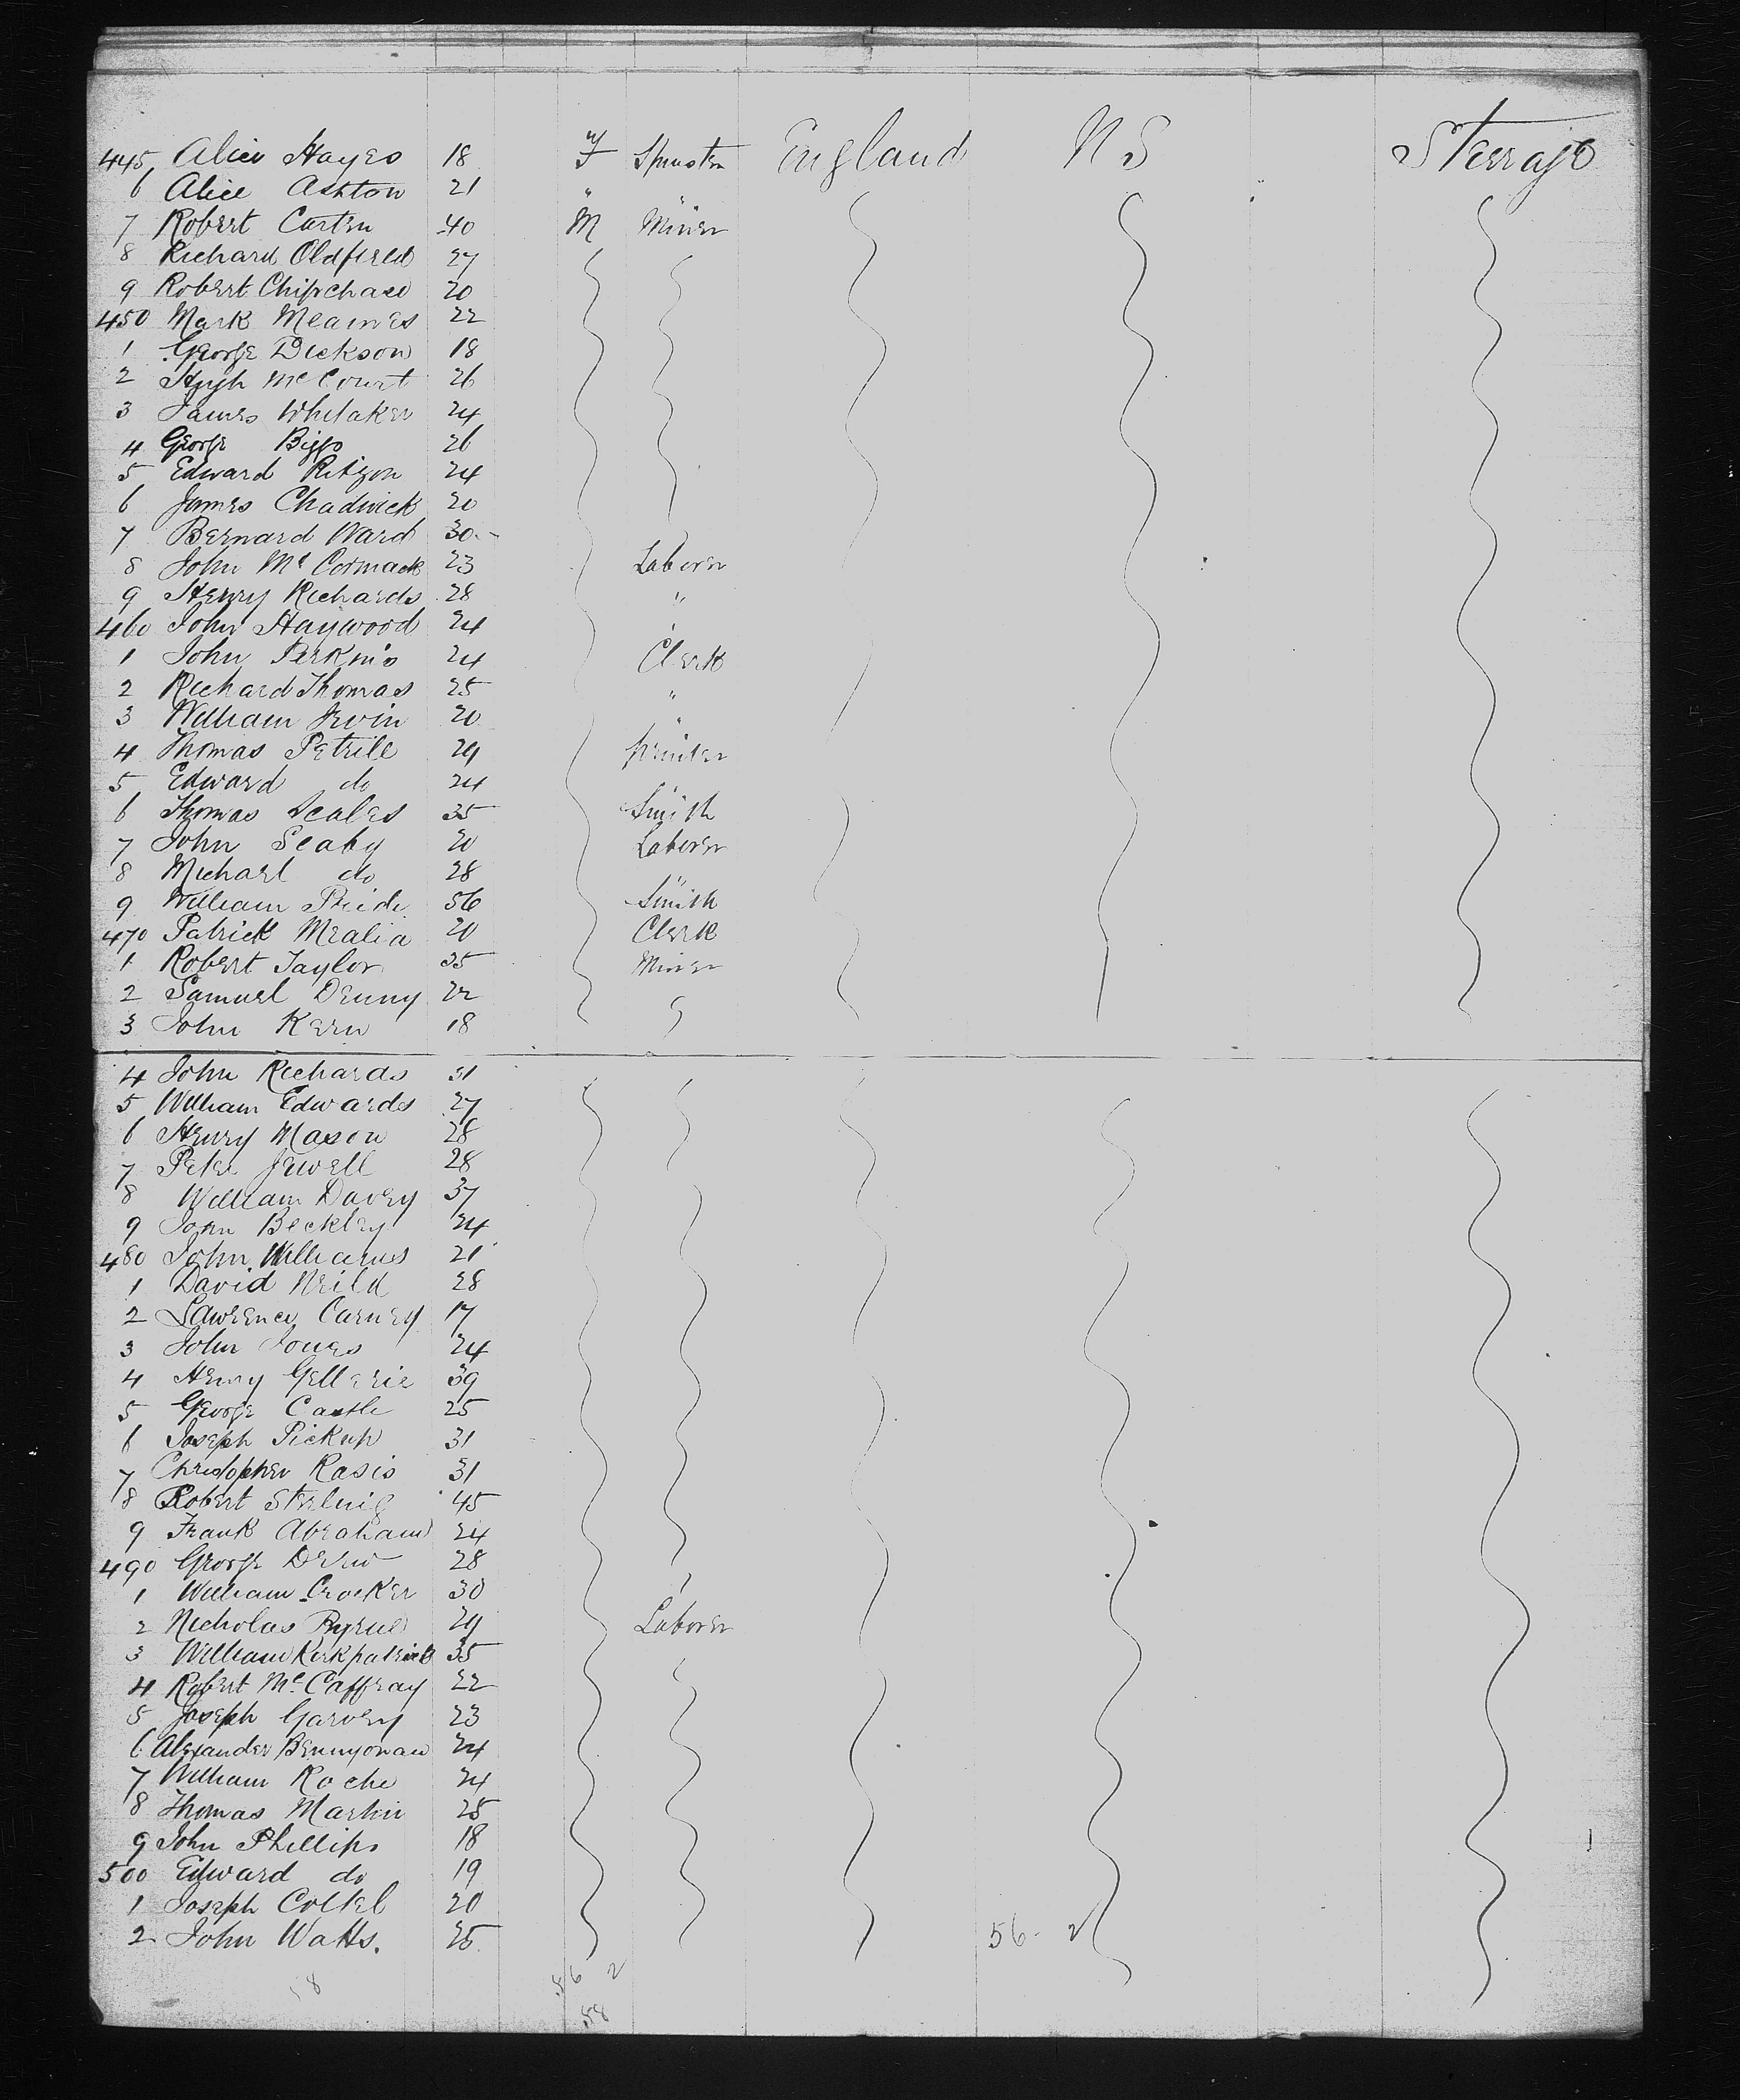 445 Alice Hayes 18 F Spinster England N S Steerage
6 Alice Ashton 21 " "
7 Robert Carten 40 M Miner
8 Richard Oldfield 27
9 Robert Chipchase 20
450 Mark 22
1 George Dickson 18
2 Hugh McCourt 26
3 James Whitaker 24
4 George Biggs 26
5 Edward Ritzon 24
6 James Chadwick 20
7 Bernard Ward 30
8 John McCormack 23 Laborer
9 Henry Richards 28 "
460 John Haywood 24 "
1 John Perkins 24 Clerk
2 Richard Thomas 25 "
3 William Irvin 20 "
4 Thomas Petrile 29 printer
5 Edward do 24 "
6 Thomas Scales 35 Smith
7 John Seaby 20 Laborer
8 Michael do 28 "
9 William 56 Smith
470 Patrick Mealia 20 Clerk
1 Robert Taylor 35 Miner
2 Samuel Denny 22
3 John Kern 18
4 John Richards 31
5 William Edwards 27
6 Henry Mason 28
7 Peter Jewell 28
8 William Davey 37
9 John Beckley 24
480 John Williams 21
1 David Neild 28
2 Lawrence Carney 17
3 John Jones 24
4 Henry Gellerie 39
5 George Castle 25
6 Joseph Pickup 31
7 Christopher Rasis 31
8 Robert Sterling 45
9 Frank Abraham 24
490 George Drew 28
1 William Crocker 30
2 Nicholas Byrne 29 Laborer
3 William Kirkpatrick 35
4 Robert McCaffray 22
5 Joseph Garvey 23
6 Alexander Bennyonan 24
7 William Roche 24
8 Thomas Martin 25
9 John Phillips 18
500 Edward do 19
1 Joseph Cottel 20
2 John Watts. 25 56- 2
58 56 2
58